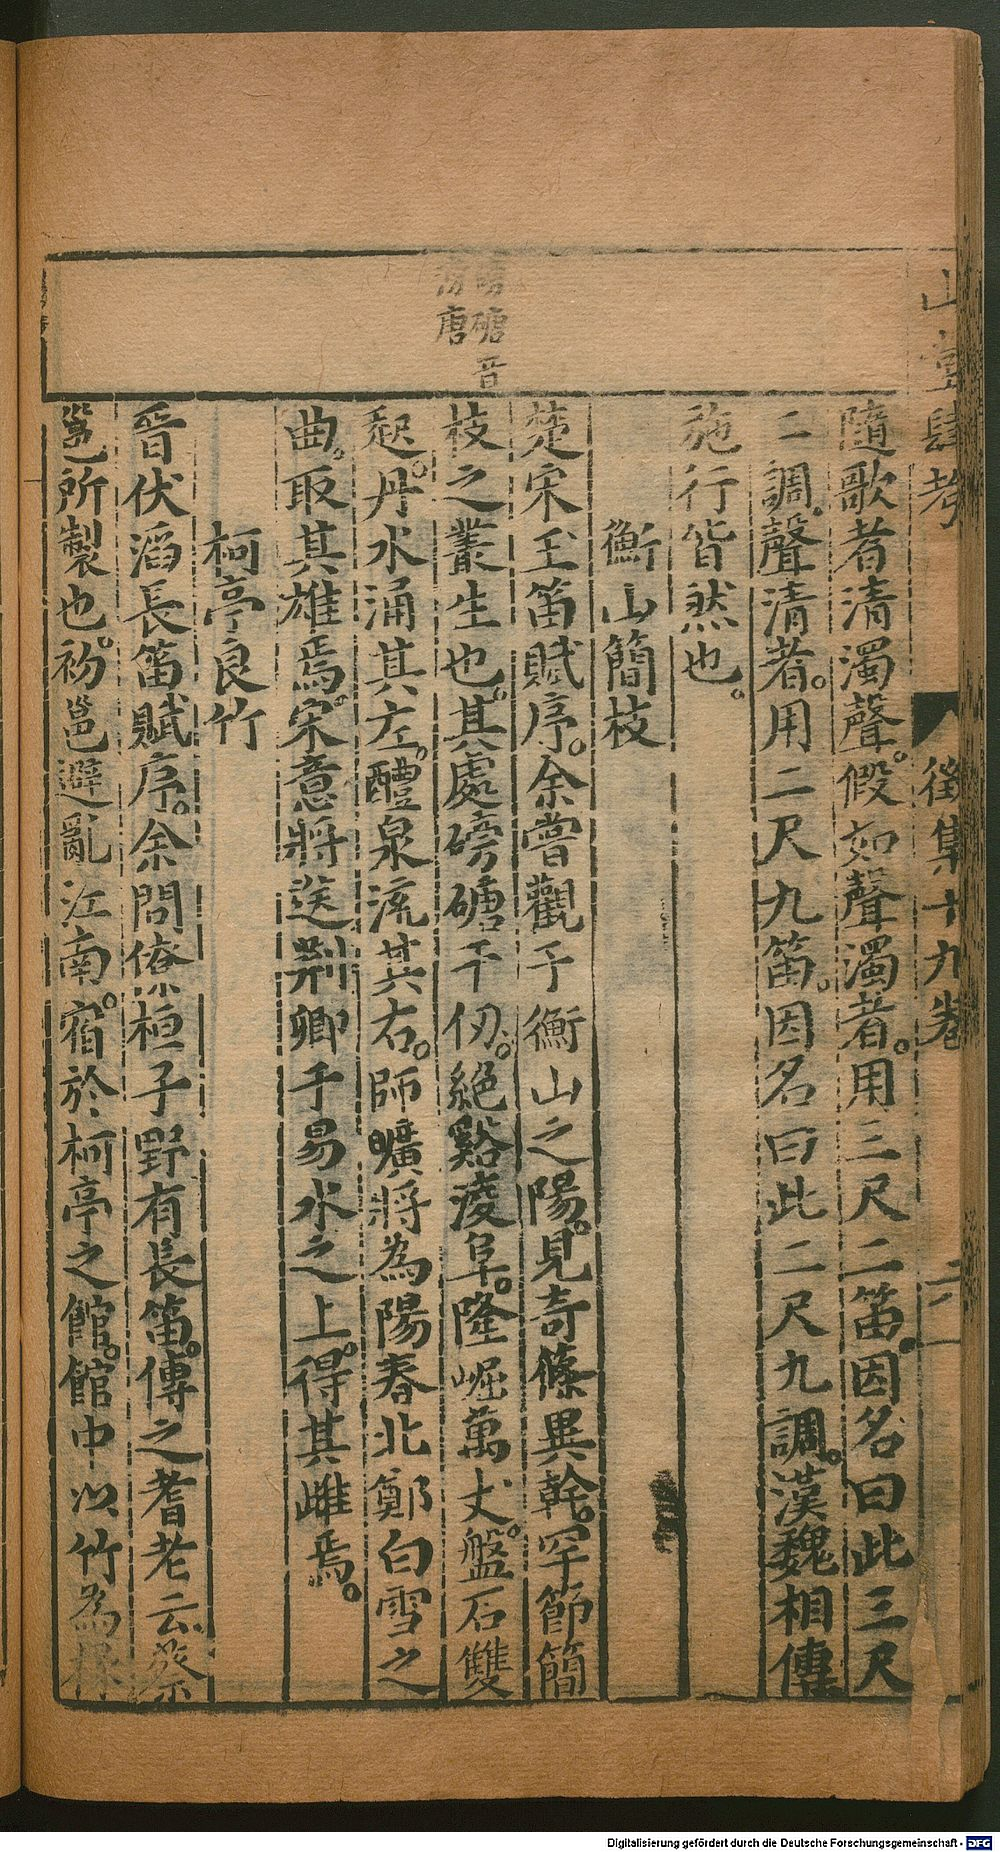 山堂肆考
徵集十九卷
二
隨歌者清濁聲。假如聲濁者。用三尺二笛。因名曰此三尺
二調。聲清者。用二尺九笛。因名曰此二尺九調。漢魏相傳
施行皆然也。
衡山簡枝
楚宋玉笛賦序。余嘗觀于衡山之陽。見奇篠異幹。罕節簡
枝之叢生也。其處磅磄千仞。絕谿凌阜。隆崛萬丈。盤石雙
起。丹水涌其左。醴泉流其右。師曠將為陽春北鄭白雪之
曲。取其雄焉。宋意將送荆卿于易水之上。得其雌焉。
柯亭良竹
晉伏滔長笛賦序。余問僚桓子野有長笛。傳之耆老云蔡
邕所製也。初邕避亂江南。宿於柯亭之館。館中以竹為椽
磅磄音
滂唐
Digitalisierung gefördert durch die Deutsche Forschungsgemeinschaft - DFG